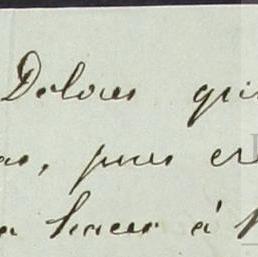 Dolores qui
as, pues cr
a hacer á